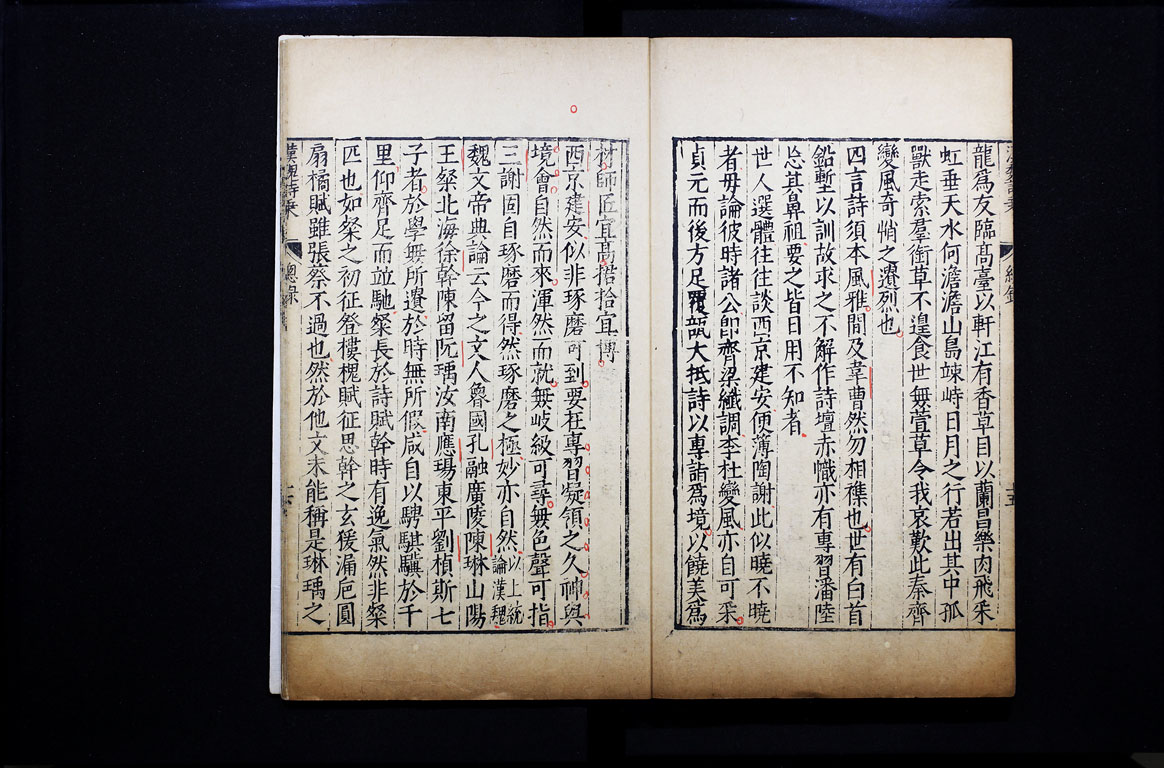 龍爲友臨高臺以軒江有香草目以蘭昌樂肉飛采
虹垂天水何澹澹山島竦峙日月之行若出其中孤
獸走索羣銜草不遑食世無萱草令我哀歎此秦齊
變風奇悄之遺烈也
四言詩須本風雅間及韋曹然勿相襍也世有白首
鉛塹以訓故求之不解作詩壇赤幟亦有專習潘陸
忘其鼻祖要之皆日用不知者
世人選體往往談西京建安便薄陶謝此似曉不曉
者毋論彼時諸公卽齊梁纖調李杜變風亦自可采
貞元而後方足覆瓿大抵詩以專詣爲境以饒美爲
材師匠宜高捃拾宜博
西京建安似非琢磨可到要在專習凝領之久神與
境會自然而來渾然而就無岐級可尋無色聲可指
三謝固自琢磨而得然琢磨之極妙亦自然以上統論漢魏
魏文帝典論云今之文人魯國孔融廣陵陳琳山陽
王粲北海徐幹陳留阮瑀汝南應瑒東平劉楨斯七
子者於學無所遺於時無所假咸自以騁騏驥於千
里仰齊足而竝馳粲長於詩賦幹時有逸氣然非粲
匹也如粲之初征登樓槐賦征思幹之玄猨漏卮圓
扇橘賦雖張蔡不過也然於他文未能稱是琳瑀之
漢魏詩乘
總录